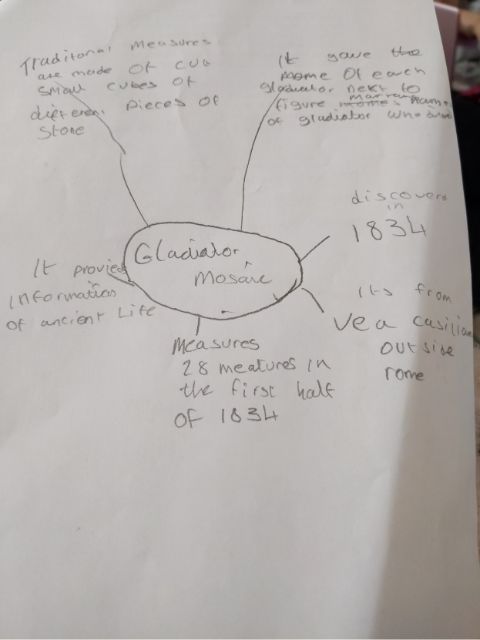 Traditonal Measures
are made of cub
small cubes of
different pieces of
Stone
It gave the
mome of each
gladiator next to
figure
of gladiator who
discovers
in
1834
Gladiator
Mosaic
It provies
information
of ancient Life
Its from
Ve a casilian
outside
rome
Measures
28 meatures in
the first half
of 1834